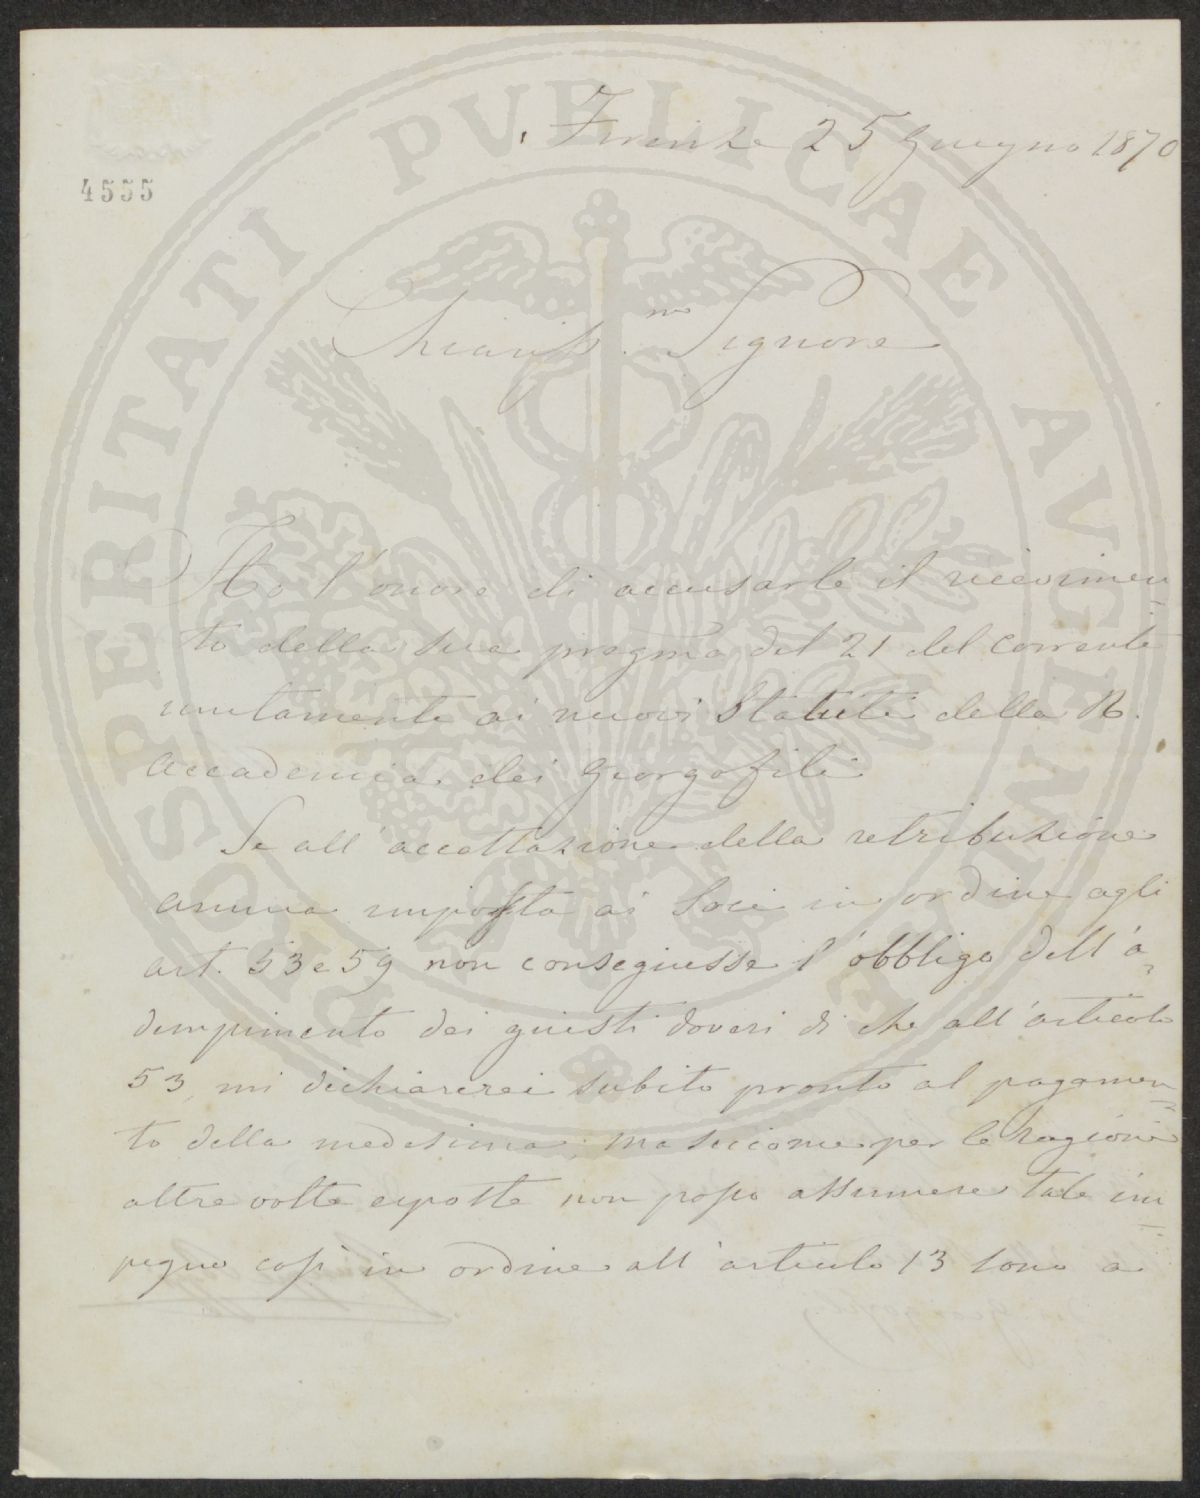 Firenze 25 Giugno 1870
4555
PROSPERITATI PVBLICAE AVGENDAE
Chiariss.mo Signore
Ho l'onore di accusarle il ricevimen
to della sua pregma del 21 del corrente
unitamente ai nuovi Statuti della R.
Accademia dei Georgofili
Se all'accettazione della retribuzione
annua imposta ai Soci in ordine agli
art. 53 e 59 non conseguisse l'obbligo dell'a
dempimento dei giusti doveri di che all'articolo
53, mi dichiarerei subito pronto al pagamen
to della medesima; ma siccome per le ragioni
altre volte esposte non posso assumere tale im
pegno così in ordine all'articolo 13 sono a